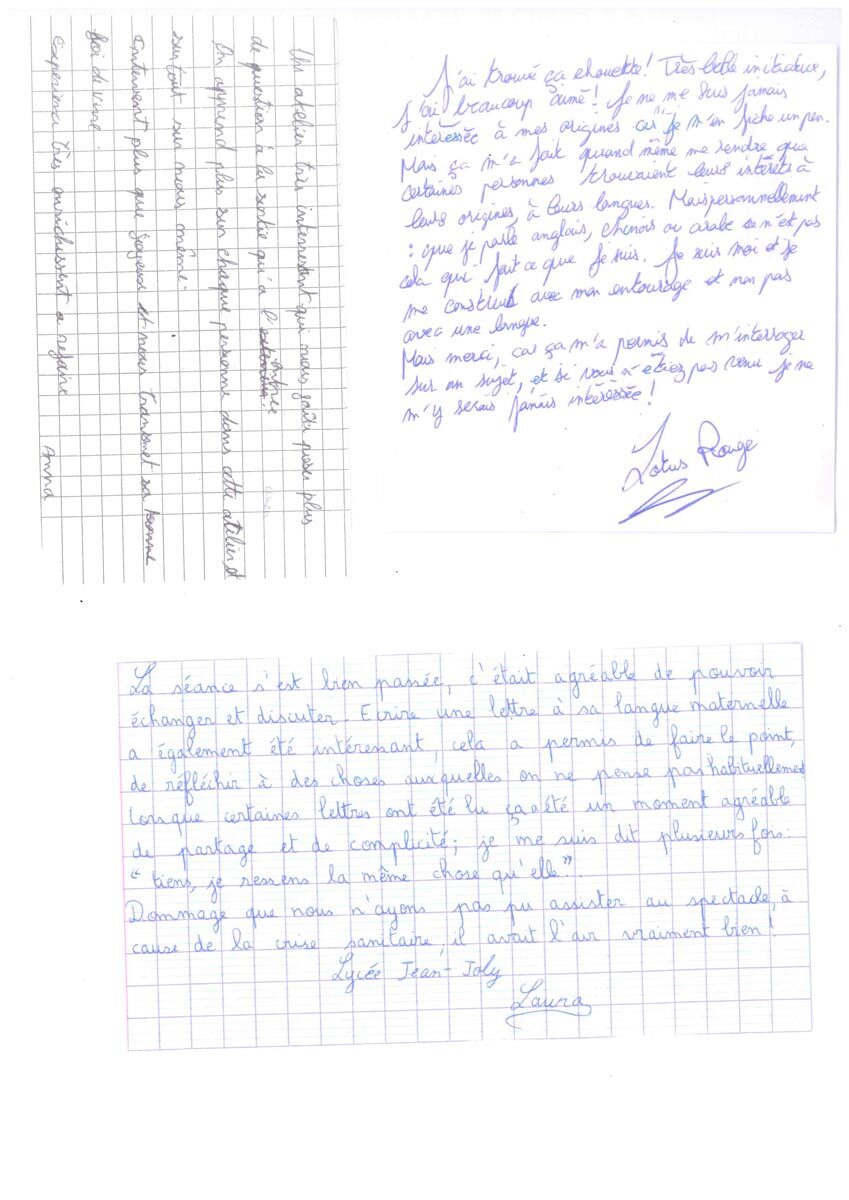 Un atelier très interressent qui nous poser plus
de question à la sortie qu'à l'entrée
On apprend plus sur chaque personne dans cette atelier et
surtout sur nous même.
Intervent plus que joyeux et nous transmet sa bonne
joi de vivre.
Experience très enrichissent a refaire
Anna
J'ai trouvé ça chouette! Très belle initiative,
j'ai beaucoup aimé! Je ne me suis jamais
intéressée à mes origines car je m'en fiche un peu.
Mais ça m'a fait quand même me rendre que
certaines personnes trouvaient leurs intérêts à
leurs origines, à leurs langues. Mais personnellement
: que je parle anglais, chinois ou arabe ce n'est pas
cela que fait ce que je suis. Je suis moi et je
me construit avec mon entourage et non pas
avec une langue.
Mais merci, car ça m'a permis de m'interroger
sur un sujet, et si vous n'étiez pas venu je ne
m'y serais jamais intéressée!
Lotus Rouge
La séance s'est bien passée, c'était agréable de pouvoir
échanger et discuter. Ecrire une lettre à sa langue maternelle
a également été intéressant, cela a permis de faire le point,
de réfléchir à des choses auxquelles on ne pense pas habituellement
lorsque certaines lettres ont été lu ça a été un moment agréable
de partage et de complicité; je me suis dit plusieurs fois:
"tiens, je ressens la même chose qu'elle".
Dommage que nous n'ayons pas pu assister au spectacle, à
cause de la crise sanitaire, il avait l'air vraiment bien!
Lycée Jean-Joly
Laura